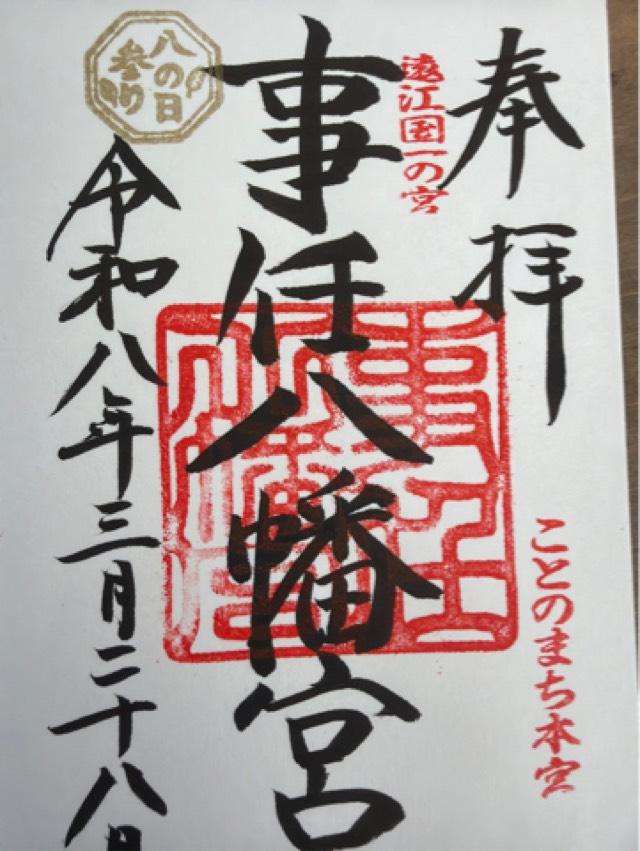 奉拝
遠江国一の宮
ことのまち本宮
事任八幡宮
八の日
参り
令和八年三月二十八日